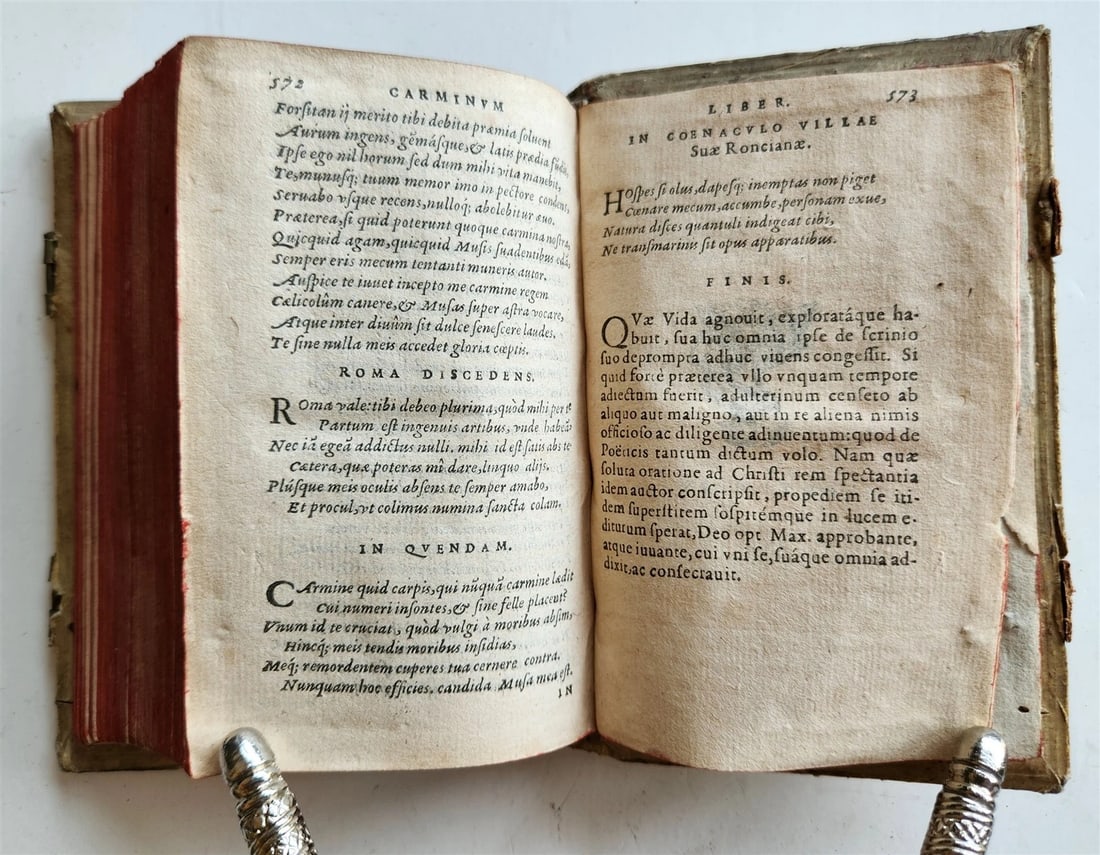 572
CARMINVM
Forsitan ij merito tibi debita præmia soluent
Aurum ingens, gēmásque,& latis prædia
Ipse ego nil horum sed dum mihi vita manebit,
Te,munusq; tuum memor imo in pectore condent,
Seruabo vsque recens,nulloq; abolebitur æuo.
Præterea,si quid poterunt quoque carmina nostra,
Quicquid agam,quicquid Musis suadentibus
Semper eris mecum tentanti muneris autor.
Auspice te iuuet incepto me carmine regem
Cælicolûm canere,& Musas super astra vocare,
Atque inter diuûm sit dulce senescere laudes.
Te sine nulla meis accedet gloria cœptis.
ROMA DISCEDENS.
Roma vale:tibi debeo plurima,quòd mihi per te
Partum est ingenuis artibus, vnde habeā
Nec iā egeā addictus nulli. mihi id est satis abs te
Cætera,quæ poteras mî dare,linquo alijs.
Plúsque meis oculis absens te semper amabo,
Et procul,vt colimus numina sancta colam.
IN QVENDAM.
CArmine quid carpis,qui nūquā carmine lædit
Cui numeri insontes,& sine felle placent?
Vnum id te cruciat, quòd vulgi à moribus absim,
Hincq; meis tendis moribus insidias,
Meq; remordentem cuperes tua cernere contra.
Nunquam hoc efficies. candida Musa mea est.
IN
LIBER. 573
IN COENACVLO VILLAE
Suæ Roncianæ.
Hospes si olus,dapesq; inemptas non piget
Cœnare mecum,accumbe,personam exue,
Natura disces quantuli indigeat cibi,
Ne transmarinis sit opus apparatibus.
FINIS.
QVæ Vida agnouit, exploratáque ha-
buit, sua huc omnia ipse de scrinio
suo deprompta adhuc viuens congessit. Si
quid fortè præterea vllo vnquam tempore
adiectum fuerit, adulterinum censeto ab
aliquo aut maligno, aut in re aliena nimis
officioso ac diligente adinuentum:quod de
Poëticis tantum dictum volo. Nam quæ
soluta oratione ad Christi rem spectantia
idem auctor conscripsit, propediem se iti-
dem superstitem sospitémque in lucem e-
diturum sperat,Deo opt Max. approbante,
atque iuuante,cui vni se,suáque omnia ad-
dixit,ac consecrauit.